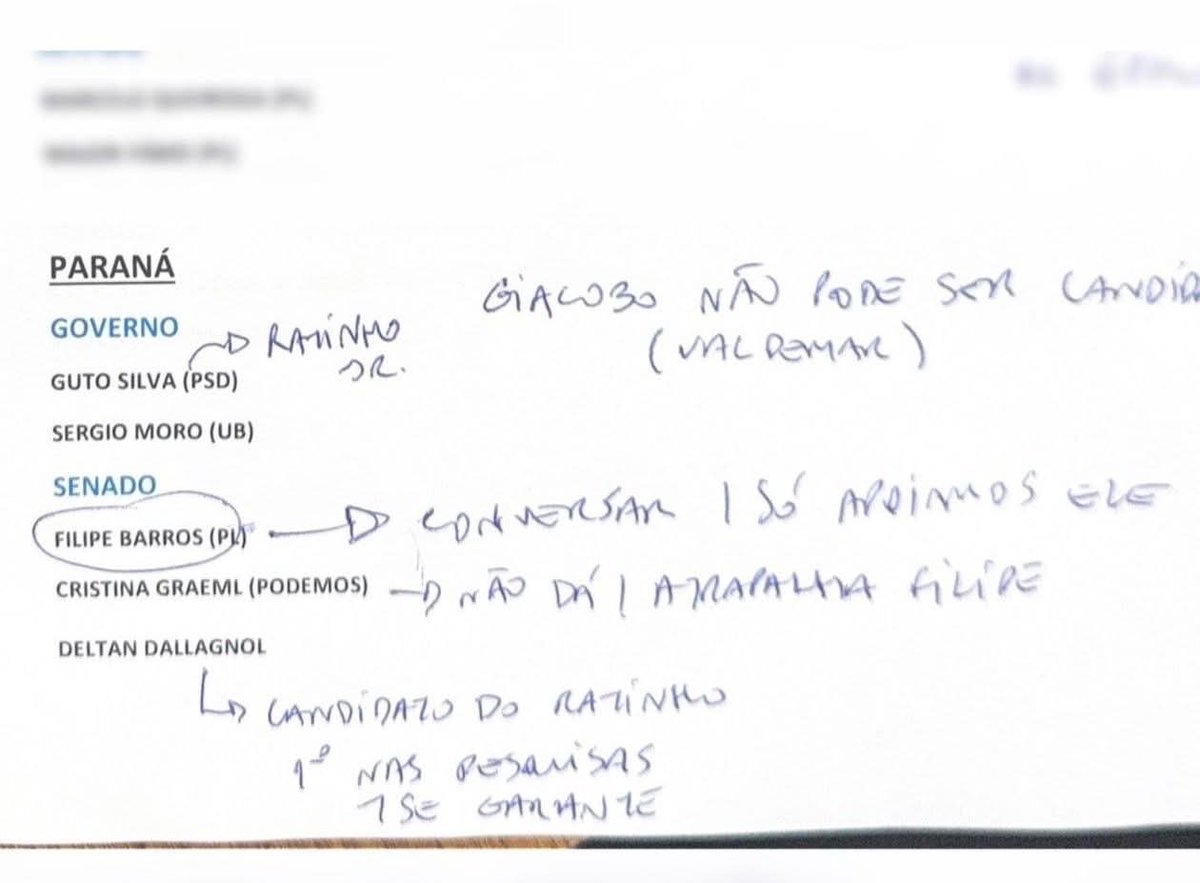 PARANÁ
GIACOBO NÃO PODE SER CANDIDA
(VALDEMAR)
GOVERNO
RATINHO
JR.
GUTO SILVA (PSD)
SERGIO MORO (UB)
SENADO
FILIPE BARROS (PL)
CONVERSAR / SÓ APOIAMOS ELE
CRISTINA GRAEML (PODEMOS)
NÃO DÁ / ATRAPALHA FILIPE
DELTAN DALLAGNOL
CANDIDATO DO RATINHO
1º NAS PESQUISAS
SE GARANTE